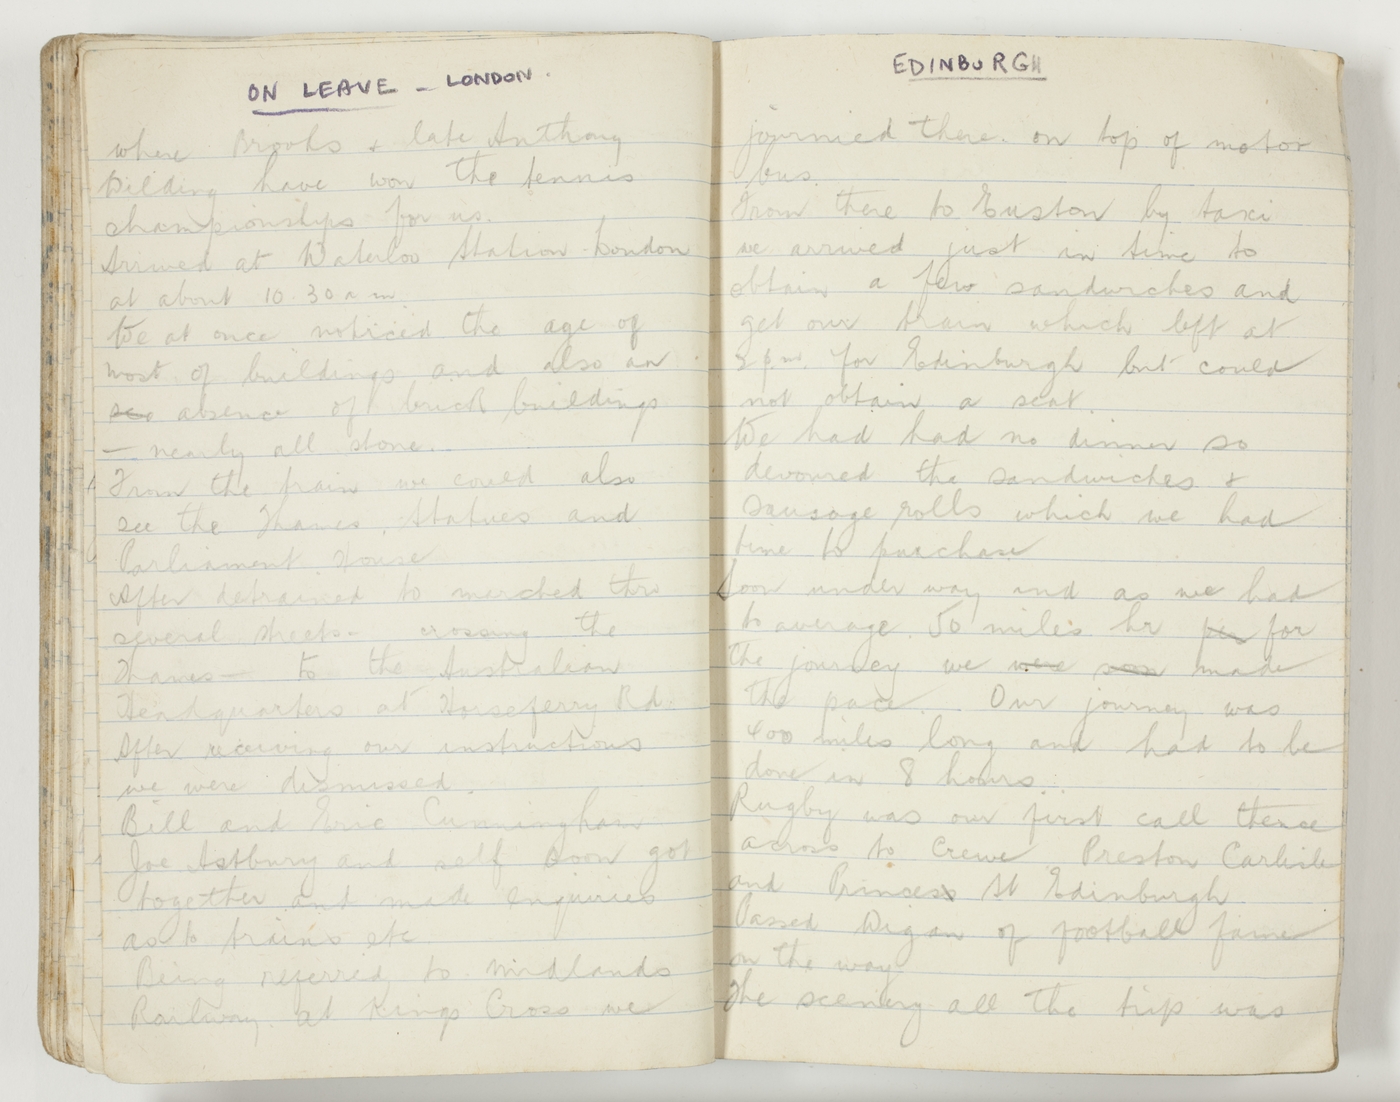 ON LEAVE - LONDON.
where Brooks & late Anthony
Wilding have won the tennis
championships for us.
Arrived at Waterloo Station London
at about 10.30 a m.
We at once noticed the age of
most of buildings and also an
absence of brick buildings
— nearly all stone.
From the train we could also
see the Thames, Statues and
Parliament House
After detrained to marched thro
several streets - crossing the
Thames — to the Australian
Headquarters at Horseferry Rd.
After receiving our instructions
we were dismissed.
Bill and Eric Cunningham
Joe Astbury and self soon got
together and made enquiries
as to trains etc
Being referred to Midlands
Railway at Kings Cross we
EDINBURGH
journied there on top of motor
bus.
From there to Euston by taxi
we arrived just in time to
obtain a few sandwiches and
get our train which left at
2 p.m. for Edinburgh but could
not obtain a seat.
We had had no dinner so
devoured the sandwiches &
sausage rolls which we had
time to purchase
Soon under way and as we had
to average 50 miles hr per for
the journey we were soon made
the pace. Our journey was
400 miles long and had to be
done in 8 hours.
Rugby was our first call thence
across to Crewe Preston Carlisle
and Princess St Edinburgh
Passed Wigan of football fame
on the way
The scenery all the trip was